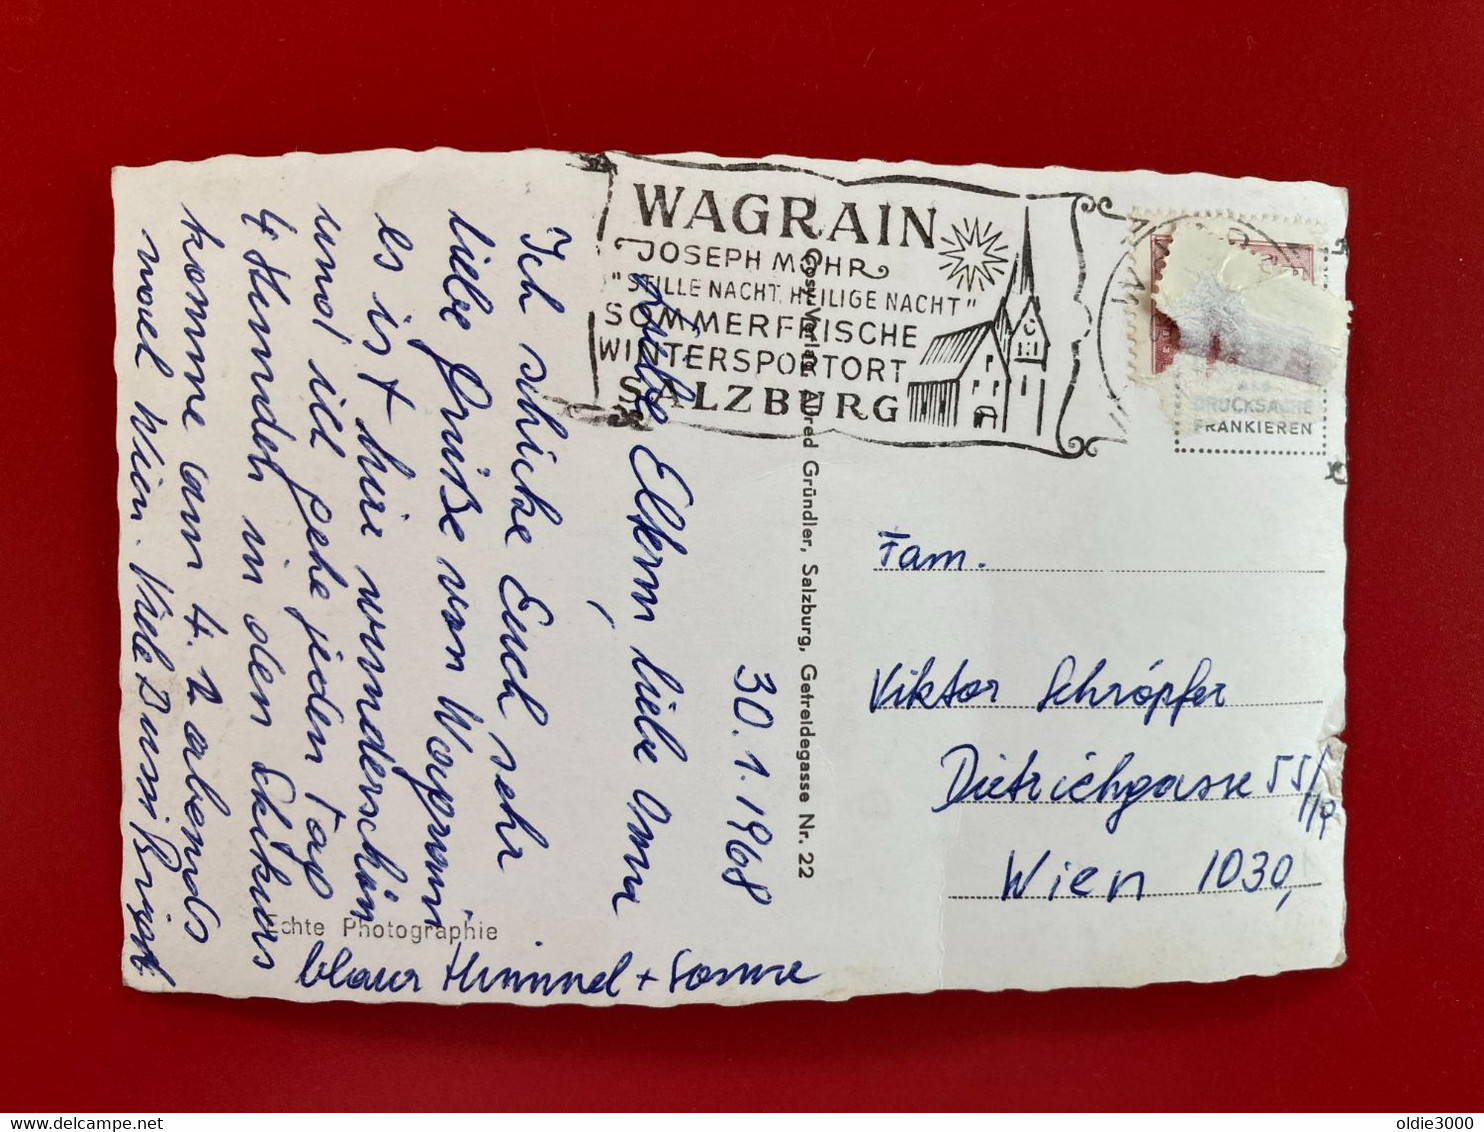 WAGRAIN
JOSEPH MOHR
"STILLE NACHT, HEILIGE NACHT"
SOMMERFRISCHE
WINTERSPORTORT
SALZBURG
DRUCKSACHE
FRANKIEREN
30.1.1968
Liebe Eltern liebe Oma,
Ich schicke Euch sehr
liebe Grüße von Wagrain,
es ist hier wunderschön
und ich gehe jeden Tag
4 Stunden in den Skikurs
komme am 4.2 abends
nach Wien. Viele Bussi
blauer Himmel + Sonne
Echte Photographie
Alfred Gründler, Salzburg, Getreidegasse Nr. 22
Fam.
Viktor Schröpfer
Dietrichgasse 55/
Wien 1030,
oldie3000